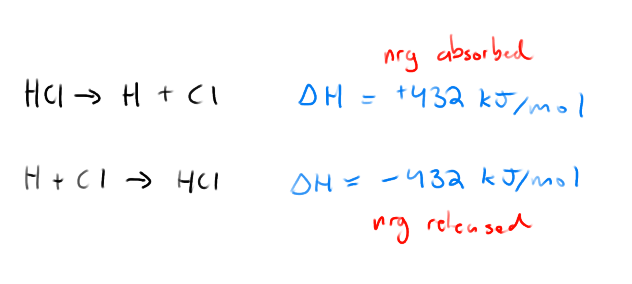 nrg absorbed
HCl → H + Cl ΔH = +432 kJ/mol
H + Cl → HCl ΔH = -432 kJ/mol
nrg released